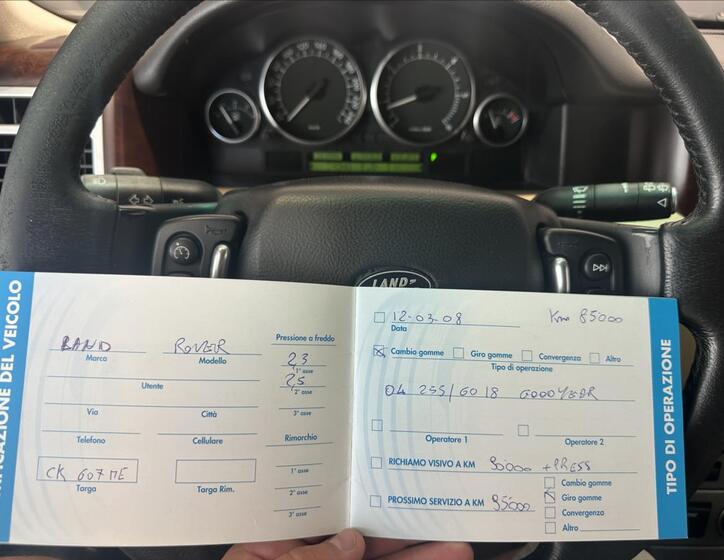 LAND
IDENTIFICAZIONE DEL VEICOLO
LAND ROVER
Marca Modello
Utente
Via Città
Telefono Cellulare
CK 607 ME
Targa Targa Rim.
Pressione a freddo
23
1° asse
25
2° asse
3° asse
Rimorchio
1° asse
2° asse
3° asse
12-03-08 Km 85000
Data
Cambio gomme Giro gomme Convergenza Altro
Tipo di operazione
04 255/60 18 GOODYEAR
Operatore 1 Operatore 2
RICHIAMO VISIVO A KM 90000 + PRESS
PROSSIMO SERVIZIO A KM 95000
Cambio gomme
Giro gomme
Convergenza
Altro
TIPO DI OPERAZIONE